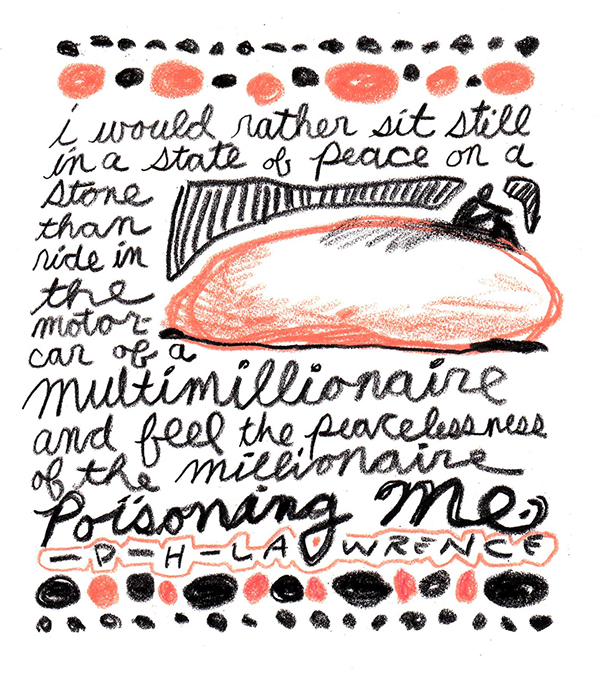 i would rather sit still
in a state of peace on a
stone
than
ride in
the
motor-
car of a
multimillionaire
and feel the peacelessness
of the millionaire
Poisoning Me.
-D-H-LAWRENCE